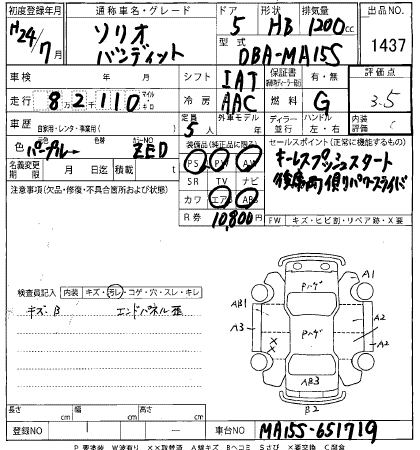 初度登録年月 通称車名・グレード ドア 形状 排気量 出品NO.
H24/7月 ソリオ バンディット 5 HB 1200cc 1437
型式 DBA-MA15S
車検 年 月 シフト IAT 保証書 有・無 評価点
走行 8 2千 110 マイル キロ 冷房 AAC 燃料 G 3.5
車歴 自家用・レンタ・事業用( ) 定員 5人 外車モデル 年 ディーラー 並行 ハンドル 左・右 内装評価 C
色 パープル→ 色替 カラーNO ZED 装備品(純正品に限る) セールスポイント(正常に機能するもの)
名義変更期限 月 日迄 積載 t PS PW AW キーレスプッシュスタート
注意事項(欠品・修復・不具合箇所および状態) SR TV ナビ 後席両側パワースライド
カワ エアB ABS
R券 10,800円 FW キズ・ヒビ割・リペア跡・X要
検査員記入 内装 キズ・汚レ・コゲ・穴・スレ・キレ
キズ、B エンドパネル歪
PハゲA1
AB1
A3 Pハゲ A2
××
A2
AB3
B2
長さ cm 幅 cm 高さ cm
登録NO ― 車台NO MA15S-651719
P要塗装 W波有り ××取替済 A線キズ Bヘコミ Sさび ×要交換 C腐食